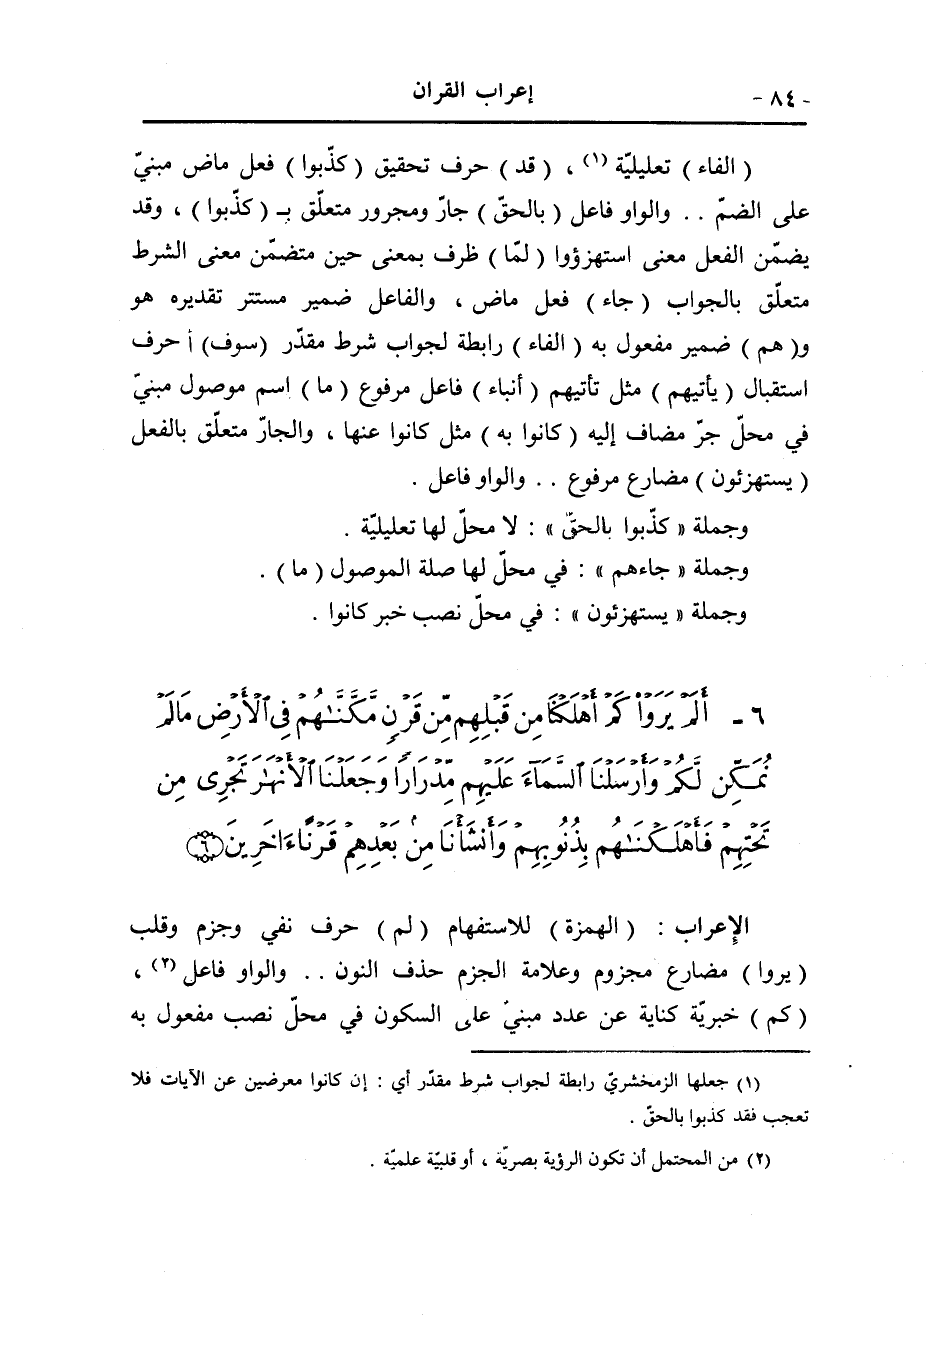 - ٨٤ - إعراب القرآن
( الفاء ) تعليليّة (١) ، ( قد ) حرف تحقيق ( كذّبوا ) فعل ماض مبنيّ
على الضمّ . . والواو فاعل ( بالحقّ ) جارّ ومجرور متعلّق بـ ( كذّبوا ) ، وقد
يضمّن الفعل معنى استهزؤوا ( لمّا ) ظرف بمعنى حين متضمّن معنى الشرط
متعلّق بالجواب ( جاء ) فعل ماض ، والفاعل ضمير مستتر تقديره هو
و( هم ) ضمير مفعول به ( الفاء ) رابطة لجواب شرط مقدّر (سوف) أ حرف
استقبال ( يأتيهم ) مثل تأتيهم ( أنباء ) فاعل مرفوع ( ما ) اسم موصول مبنيّ
في محلّ جرّ مضاف إليه ( كانوا به ) مثل كانوا عنها ، والجارّ متعلّق بالفعل
( يستهزئون ) مضارع مرفوع . . والواو فاعل .
وجملة « كذّبوا بالحقّ » : لا محلّ لها تعليليّة .
وجملة « جاءهم » : في محلّ لها صلة الموصول ( ما ) .
وجملة « يستهزئون » : في محلّ نصب خبر كانوا .
٦ - أَلَمْ يَرَوْاْ كَمْ أَهْلَكْنَا مِن قَبْلِهِم مِّن قَرْنٍ مَّكَّنَّٰهُمْ فِى ٱلْأَرْضِ مَا لَمْ
نُمَكِّن لَّكُمْ وَأَرْسَلْنَا ٱلسَّمَآءَ عَلَيْهِم مِّدْرَارًا وَجَعَلْنَا ٱلْأَنْهَٰرَ تَجْرِى مِن
تَحْتِهِمْ فَأَهْلَكْنَٰهُم بِذُنُوبِهِمْ وَأَنشَأْنَا مِنۢ بَعْدِهِمْ قَرْنًا ءَاخَرِينَ ﴿٦﴾
الإعراب : ( الهمزة ) للاستفهام ( لم ) حرف نفي وجزم وقلب
( يروا ) مضارع مجزوم وعلامة الجزم حذف النون . . والواو فاعل (٢) ،
( كم ) خبريّة كناية عن عدد مبنيّ على السكون في محلّ نصب مفعول به
(١) جعلها الزمخشريّ رابطة لجواب شرط مقدّر أي : إن كانوا معرضين عن الآيات فلا
تعجب فقد كذبوا بالحقّ .
(٢) من المحتمل أن تكون الرؤية بصريّة ، أو قلبيّة علميّة .